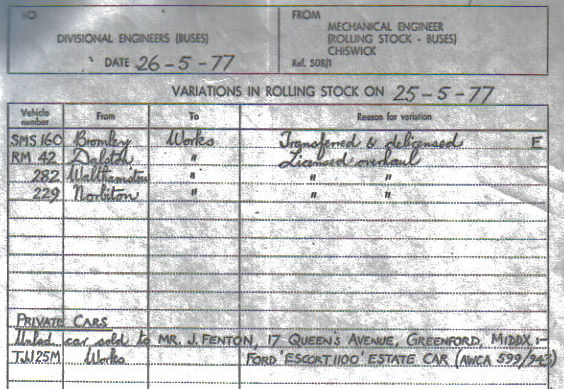 TO
DIVISIONAL ENGINEERS (BUSES)
DATE 26-5-77
FROM
MECHANICAL ENGINEER
(ROLLING STOCK - BUSES)
CHISWICK
Ref. 508/1
VARIATIONS IN ROLLING STOCK ON 25-5-77
Vehicle number From To Reason for variation
SMS 160 Bromley Works Transferred & delicensed E
RM 42 Dalston " Licensed overhaul
282 Walthamstow " " "
229 Norbiton " " "
PRIVATE CARS
Unltd. car sold to MR. J. FENTON, 17 QUEEN'S AVENUE, GREENFORD, MIDDX:-
TJJ 25M Works FORD 'ESCORT 1100' ESTATE CAR (AWCA 599/943)